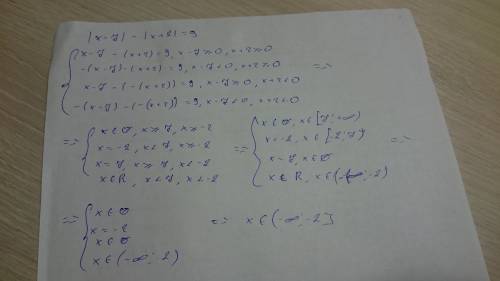 |x-7| - |x+2| = 9
x-7 - (x+2) = 9, x-7≥0, x+2≥0
-(x-7) - (x+2) = 9, x-7<0, x+2≥0 =>
x-7 - (-(x+2)) = 9, x-7≥0, x+2<0
-(x-7) - (-(x+2)) = 9, x-7<0, x+2<0
=> x∈∅, x≥7, x≥-2
x=-2, x<7, x≥-2
x=7, x≥7, x<-2
x∈R, x<7, x<-2
=> x∈∅, x∈[7;+∞)
x=-2, x∈[-2;7) =>
x=7, x∈∅
x∈R, x∈(-∞;-2)
=> x∈∅
x=-2
x∈∅
x∈(-∞;-2)
=> x∈(-∞;-2]